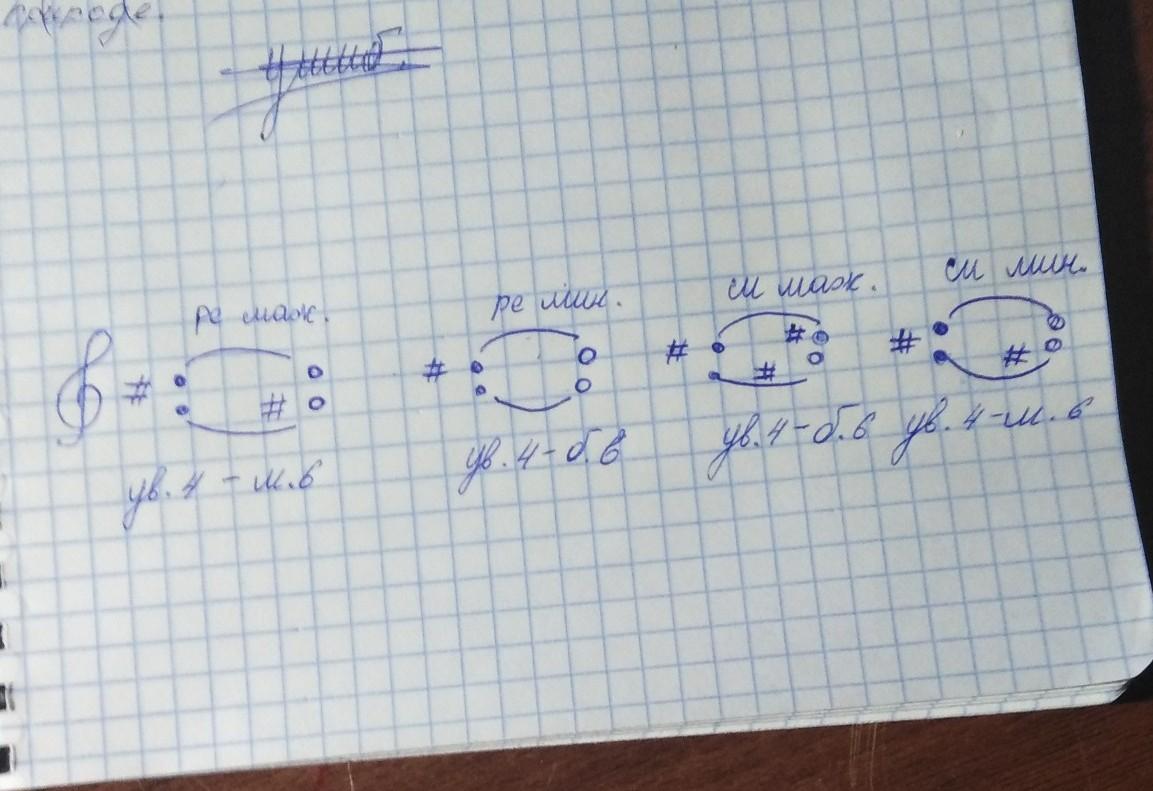 природе.
ре маж. ре мин. си маж. си мин.
ув. 4 - м.6 ув. 4 - б.6 ув. 4 - б.6 ув. 4 - м.6